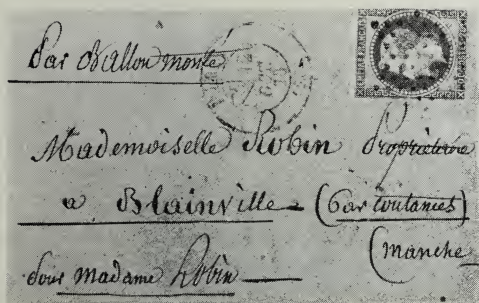 Par Ballon monté
Mademoiselle Robin Propriétaire
a Blainville (par Coutances)
(Manche
Pour madame Robin